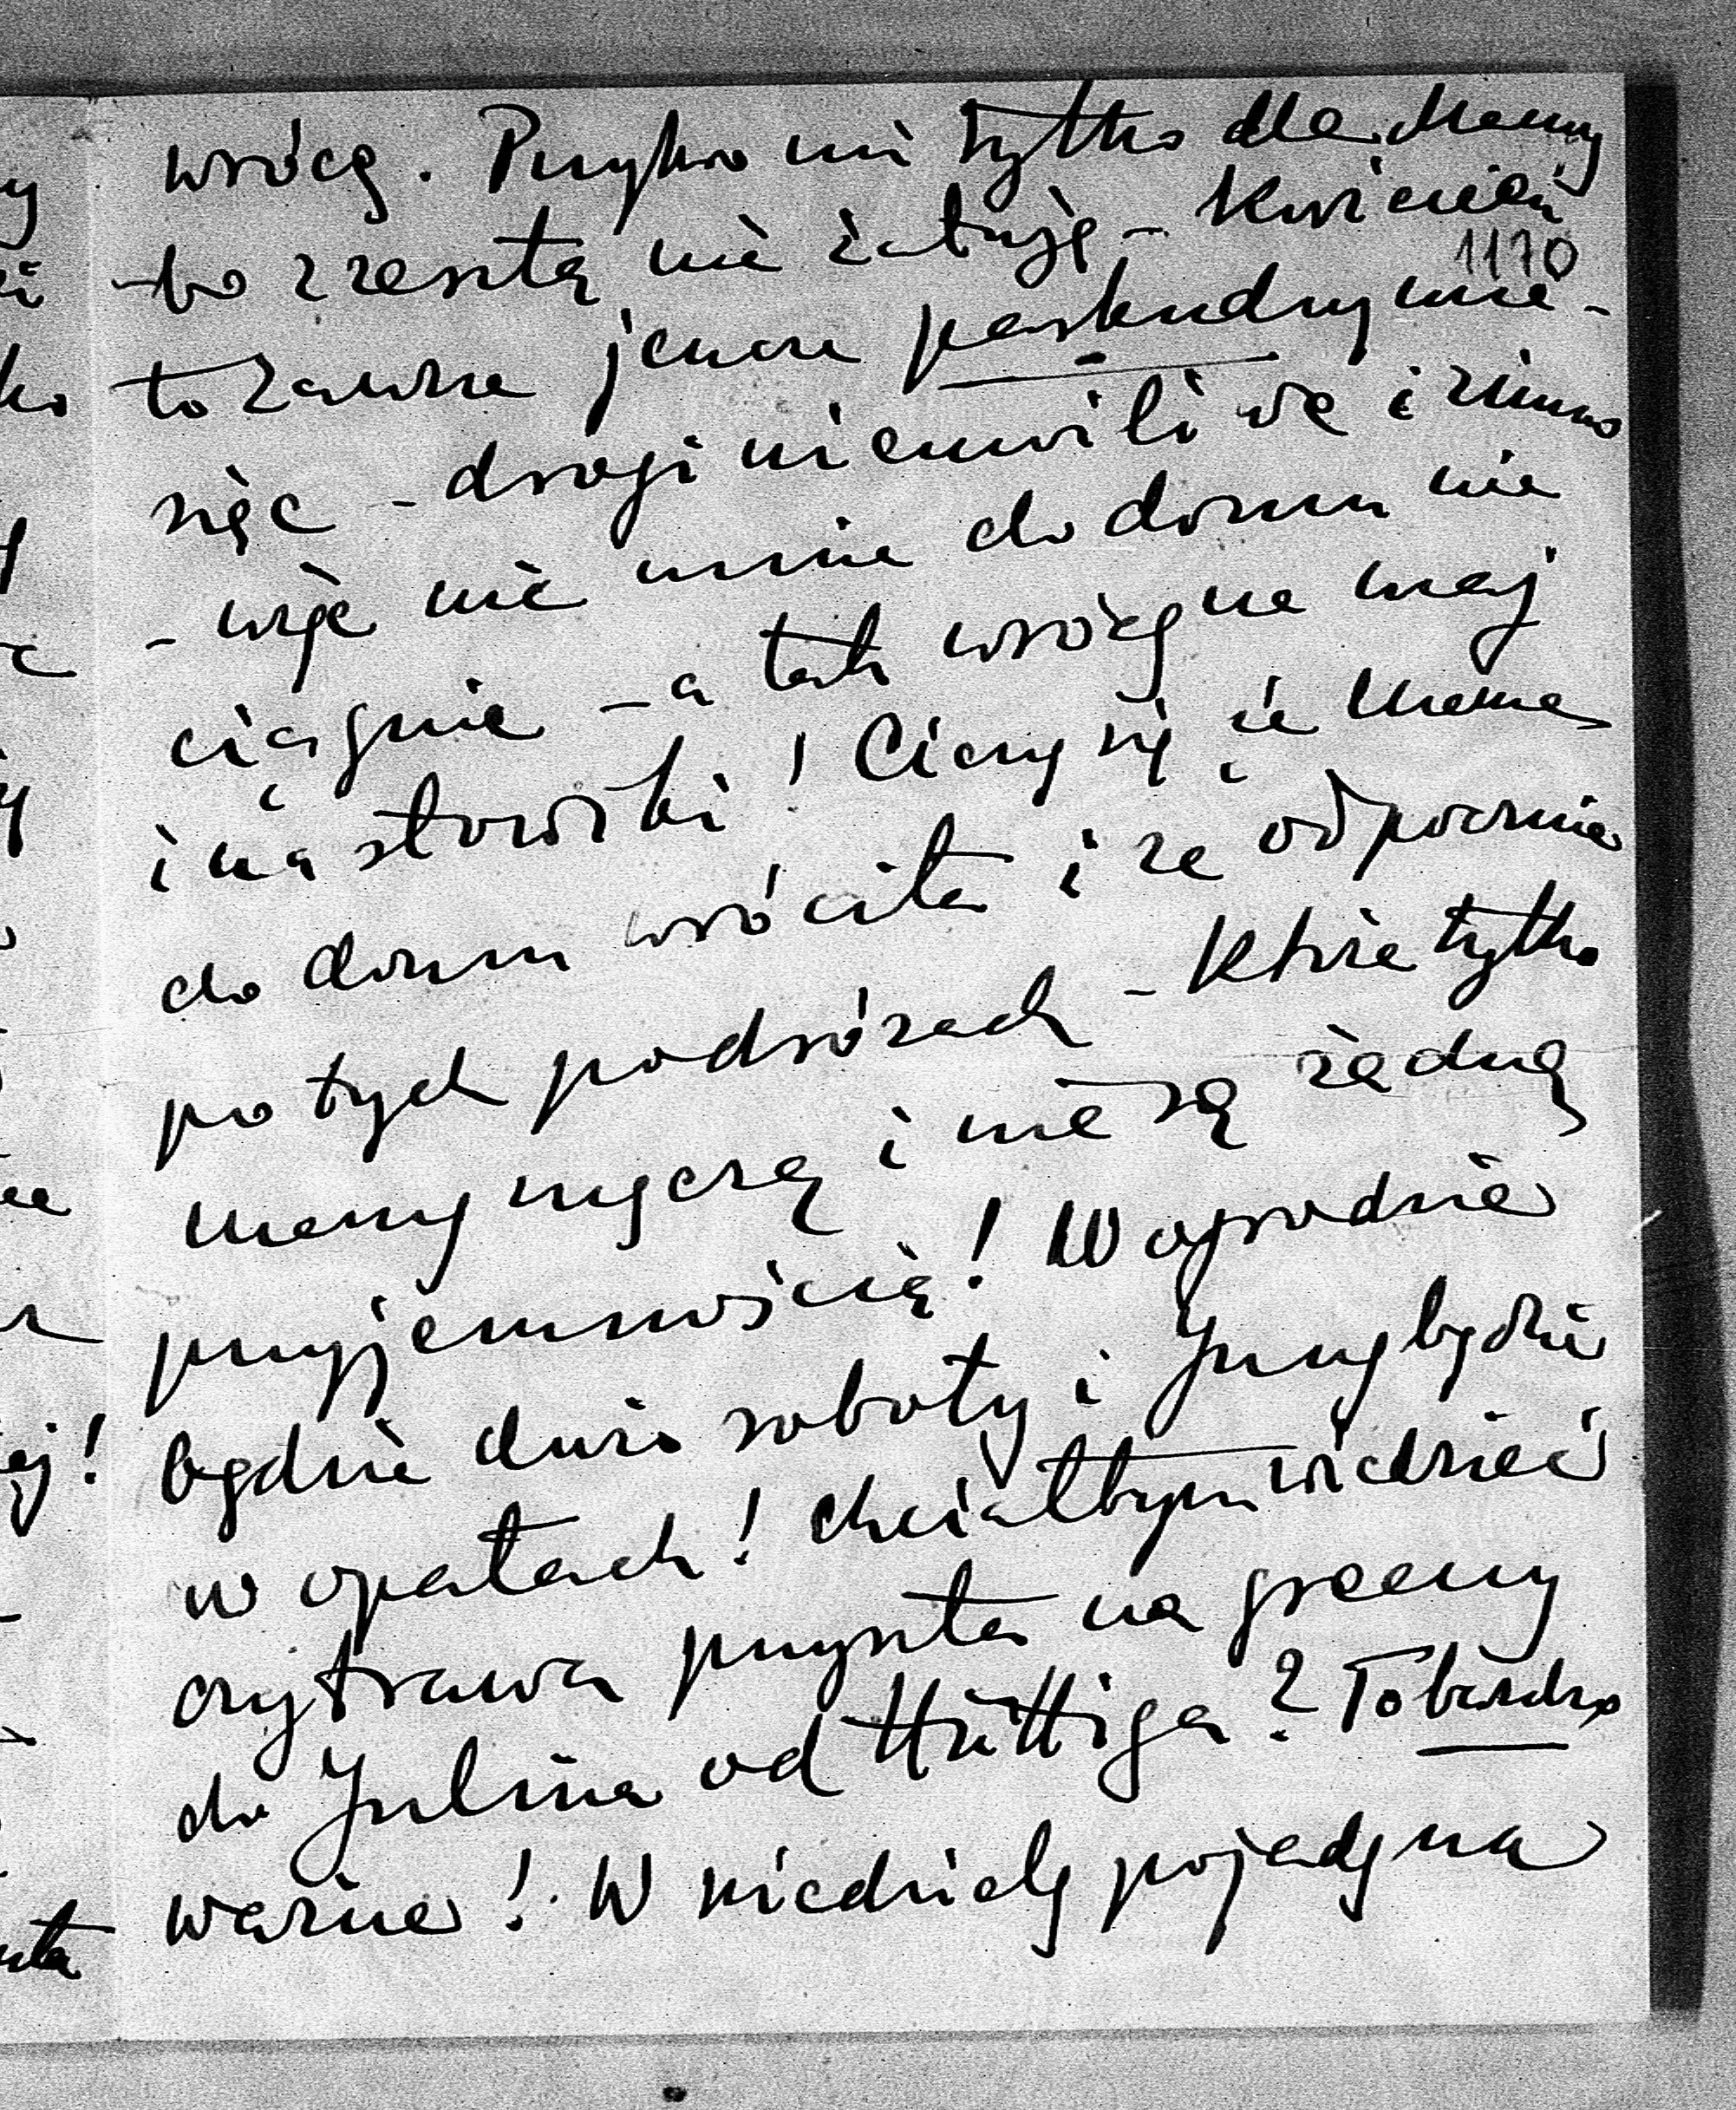 wrócę. Przykro mi tylko dla Mamy
-bo zresztą nie żałuję - Kwiecień
1170
to zawsze jeszcze paskudny mie-
sięc - drogi niemożliwe i zimno
- więc nie mnie do domu nie
ciągnie - a tak wrócę na maj
i na słowiki! Cieszy się że Mama
do domu wróciła i że odpocznie
po tych podróżach - które tylko
mamy męczą i nie są żadną
przyjemnością! W ogrodzie
będzie dużo roboty i Jerzy będzie
w opałach! Chciałbym wiedzieć
czy trawa przyszła na gracny
do Julina od Hüttiga? To bardzo
ważne! W niedzielę pojadę na